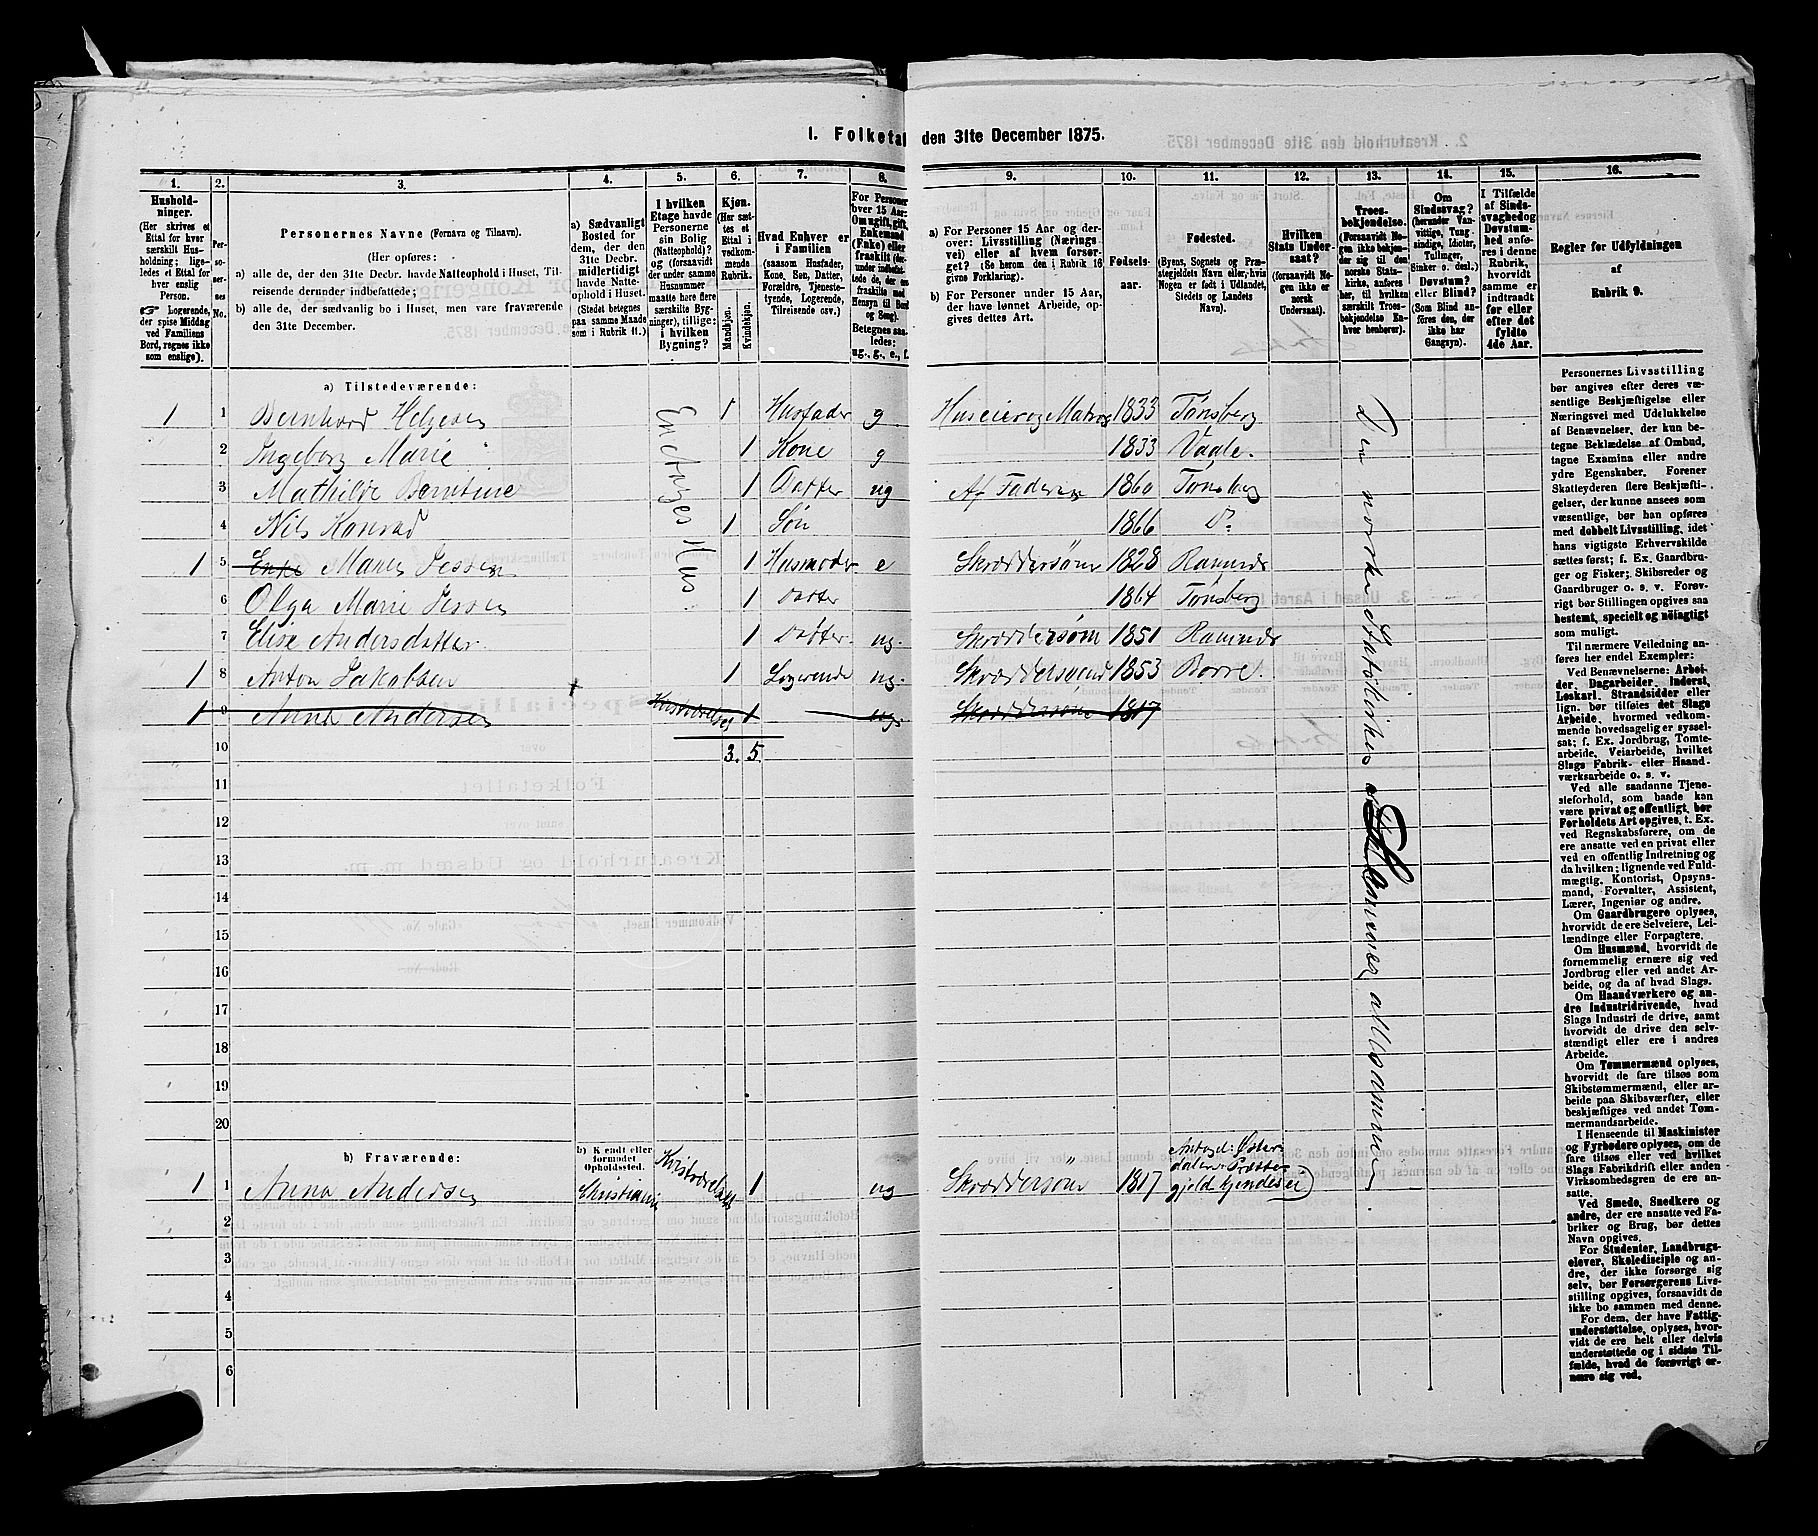 1. Folketal den 31te December 1875.
1. 2. 3. 4. 5. 6. 7. 8. 9. 10. 11. 12. 13. 14. 15. 16.
Hushold-
ninger.
(Her skrives et
Ettal for hver
særskilt Hus-
holdning; lige-
ledes et Ettal for
hver enslig
Person.
Logerende,
der spise Middag
ved Familiens
Bord, regnes ikke
som enslige).
Personernes No.
Personernes Navne (Fornavn og Tilnavn).
(Her opføres:
a) alle de, der den 31te Decbr. havde Natteophold i Huset, Til-
reisende derunder indbefattede;
b) alle de, der sædvanlig bo i Huset, men vare fraværende
den 31te December.
a) Sædvanligt
Bosted for
dem, der den
31te Decbr.
midlertidigt
havde Natte-
ophold i Huset.
(Stedet betegnes
paa samme Maade
som i Rubrik 11.)
I hvilken
Etage havde
Personerne
sin Bolig
(Natteophold)?
og (forsaavidt
der under samme
Husnummer
maatte høre flere
særskilte Byg-
ninger), tillige:
i hvilken
Bygning?
Kjøn.
(Her sæt-
tes et
Ettal i
vedkom-
mende
Rubrik.
Mandkjøn.
Kvindekjøn.
Hvad Enhver er
i Familien
(saasom Husfader,
Kone, Søn, Datter,
Forældre, Tjeneste-
tyende, Logerende,
Tilreisende osv.)
For Personer
over 15 Aar:
Om ugift, gift,
Enkemand
(Enke) eller
fraskilt
Betegnes saa-
ledes:
ug., g., e., f.
a) For Personer 15 Aar og der-
over: Livsstilling (Nærings-
vei) eller af hvem forsør-
get? (Se herom den i Rubrik 16
givne Forklaring).
b) For Personer under 15 Aar,
der have lønnet Arbeide, op-
gives dettes Art.
Fødsels-
aar.
Fødested.
(Byens, Sognets og Præ-
stegjeldets Navn eller, hvis
Nogen er født i Udlandet,
Stedets og Landets
Navn).
Hvilken
Stats Under-
saat?
(forsaavidt No-
gen ikke er
norsk
Undersaat).
Troes-
bekjendelse.
(Forsaavidt No-
gen ikke bekjen-
der sig til den
norske Stats-
kirke, anføres
her, til hvilken
særskilt Troes-
bekjendelse En-
hver henhører).
Om
Sindssvag?
(herunder Van-
vittige, Tung-
sindige, Idioter,
Tullinger,
Sinker o. desl.)
Døvstum?
eller Blind?
(Som Blind an-
føres den, der
ikke har
Gangsyn).
I Tilfælde
af Sinds-
svaghed og
Døvstum-
hed anfø-
res i denne
Rubrik,
hvorvidt
samme er
indtraadt
før eller
efter det
fyldte
4de Aar.
Regler for Udfyldningen
af
Rubrik 9.
a) Tilstedeværende:
1 1 Bernhard Helgesen 1 Husfader g Huseier og Matros 1833 Tønsberg
2 Ingeborg Marie 1 Kone g 1833 Vaale.
3 Mathilde Berntine 1 Datter ug Af Faderen 1860 Tønsberg
4 Nils Konrad 1 Søn 1866 Do
1 5 Enke Maren Jessen 1 Husmoder e Skræddersøm 1828 Ramnæs
6 Olga Marie Jessen 1 Datter 1864 Tønsberg
7 Elise Andersdatter 1 Datter. ug. Skræddersøm 1851 Ramnæs
1 8 Anton Jakobsen 1 Logerende ug. Skræddersvend 1853 Borre.
1 9 Anna Andersen Kvistværelses 1 ug Skræddersøm 1817
Enetages Hus.
Den norske Statskirke
allesammen
10 3. 5
11
12
13
14
15
16
17
18
19
20
b) Fraværende:
b) Kjendt eller
formodet
Opholdssted.
1 1 Anna Andersen Christiania Kvistværelset 1 ug Skræddersøm 1817 Antagl: Øster
dalen (Præste
gjeld kjendes ei)
2
3
4
5
6
Personernes Livsstilling
bør angives efter deres væ-
sentlige Beskjæftigelse eller
Næringsvei med Udelukkelse
af Benævnelser, der kun be-
tegne Beklædelse af Ombud,
tagne Examina eller andre
ydre Egenskaber. Forener
Skatteyderen flere Beskjæfti-
gelser, der kunne ansees som
væsentlige, bør han opføres
med dobbelt Livsstilling, idet
hans vigtigste Erhvervskilde
sættes først; f. Ex. Gaardbru-
ger og Fisker; Skibsreder og
Gaardbruger o. s. v. Forøv-
rigt bør Stillingen opgives saa
bestemt, specielt og nøiagtigt
som muligt.
Til nærmere Veiledning an-
føres her endel Exempler:
Ved Benævnelserne: Arbei-
der, Dagarbeider, Inderst,
Løskarl, Strandsidder eller
lign. bør tilføies det Slags
Arbeide, hvormed vedkom-
mende hovedsagelig er syssel-
sat; f. Ex. Jordbrug, Tomte-
arbeide, Veiarbeide, hvilket
Slags Fabrik- eller Haand-
værksarbeide o. s. v.
Ved alle saadanne Tjene-
steforhold, som baade kan
være privat og offentligt, bør
Forholdets Art opgives, t. Ex.
ved Regnskabsførere, om de
ere ansatte ved en privat eller
ved en offentlig Indretning og
da hvilken; lignende ved Fuld-
mægtig, Kontorist, Opsyns-
mand, Forvalter, Assistent,
Lærer, Ingeniør og andre.
Om Gaardbrugere oplyses,
hvorvidt de ere Selveiere, Lei-
lændinge eller Forpagtere.
Om Husmænd, hvorvidt de
fornemmelig ernære sig ved
Jordbrug eller ved andet Ar-
beide, og da af hvad Slags.
Om Haandværkere og an-
dre Industridrivende, hvad
Slags Industri de drive, samt
hvorvidt de drive den selv-
stændigt eller ere i andres
Arbeide.
Om Tømmermænd oplyses,
hvorvidt de fare tilsøs som
Skibstømmermænd, eller ar-
beide paa Skibsværfter, eller
beskjæftiges ved andet Tøm-
mermandsarbeide.
I Henseende til Maskinister
og Fyrbødere oplyses, om de
fare tilsøs eller ved hvilket
Slags Fabrikdrift eller anden
Virksomhedsgren de ere an-
satte.
Ved Smede, Snedkere og
andre, der ere ansatte ved Fa-
briker og Brug, bør dettes
Navn opgives.
For Studenter, Landbrugs-
elever, Skoledisciple og an-
dre, der ikke forsørge sig
selv, bør Forsørgerens Livs-
stilling opgives, forsaavidt de
ikke bo sammen med denne.
For dem, der have Fattig-
understøttelse, oplyses, hvor-
vidt de ere helt eller delvis
understøttede og i sidste Til-
fælde, hvad de forøvrigt er-
nære sig ved.